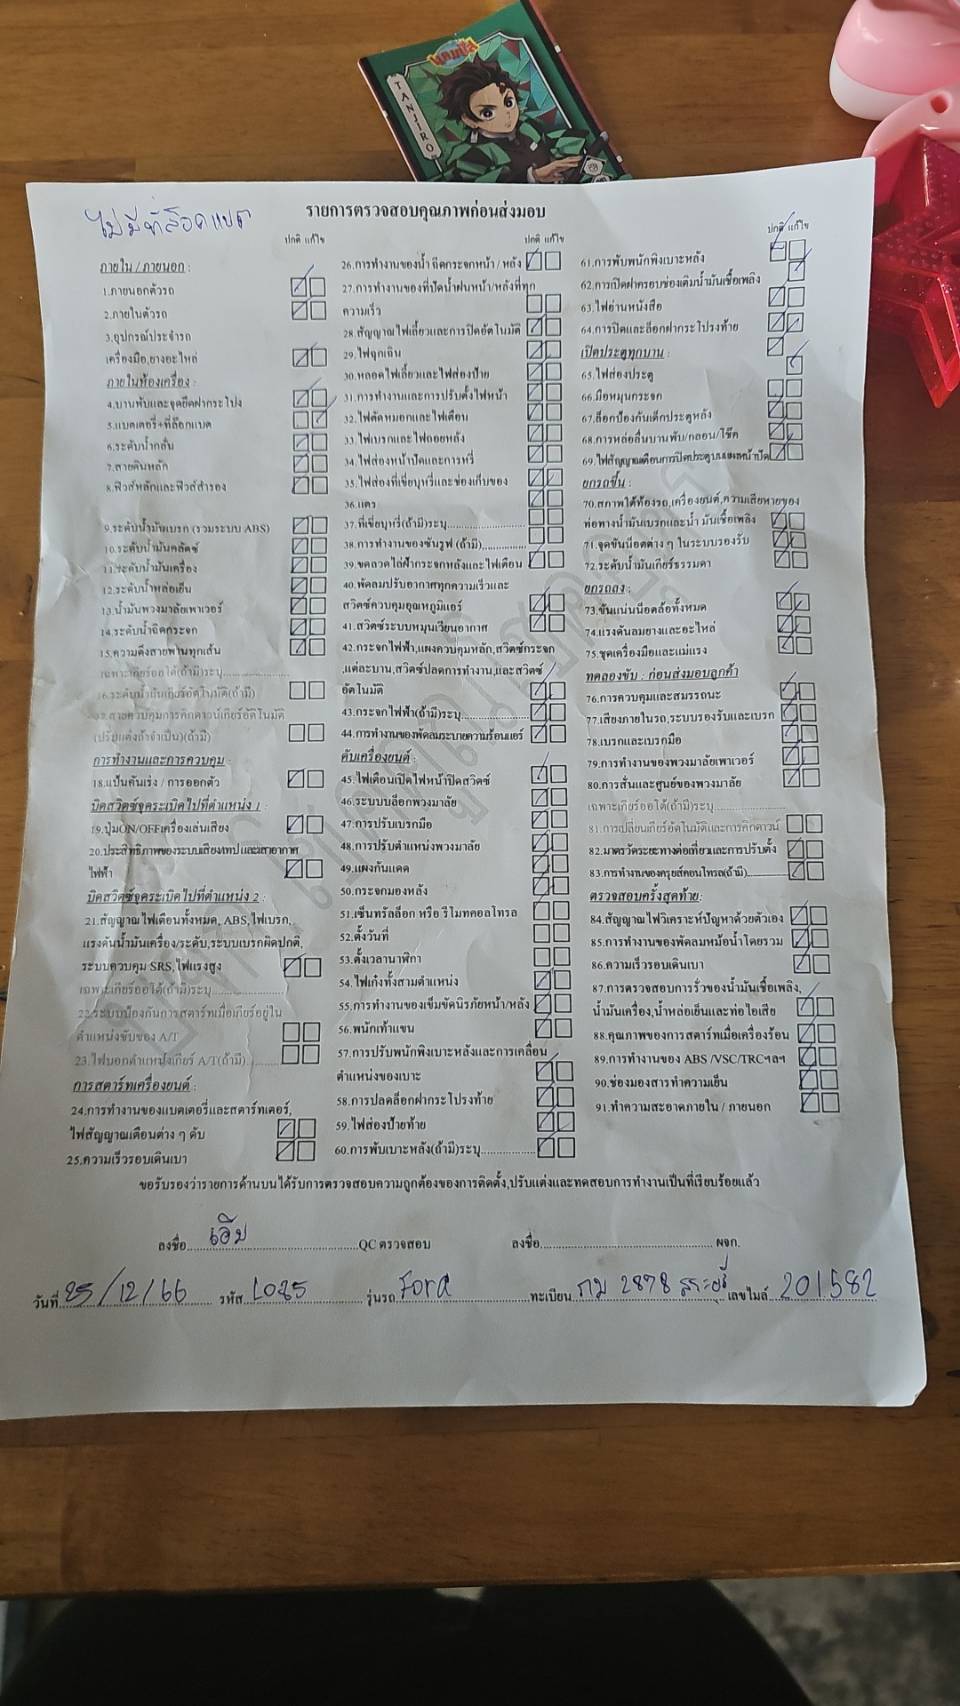 TANJIRO
ไม่มีที่ล็อคแบต
รายการตรวจสอบคุณภาพก่อนส่งมอบ
ปกติ แก้ไข
ภายใน / ภายนอก :
1.ภายนอกตัวรถ
2.ภายในตัวรถ
3.อุปกรณ์ประจำรถ
เครื่องมือ,ยางอะไหล่
ภายในห้องเครื่อง :
4.บานพับและจุดยึดฝากระโปรง
5.แบตเตอรี่+ที่ล๊อกแบต
6.ระดับน้ำกลั่น
7.สายดินหลัก
8.ฟิวส์หลักและฟิวส์สำรอง
9.ระดับน้ำมันเบรก (รวมระบบ ABS)
10.ระดับน้ำมันคลัตช์
11.ระดับน้ำมันเครื่อง
12.ระดับน้ำหล่อเย็น
13.น้ำมันพวงมาลัยพาวเวอร์
14.ระดับน้ำฉีดกระจก
15.ความตึงสายพานทุกเส้น
เฉพาะเกียร์ออโต้(ถ้ามี)ระบุ
16.ระดับน้ำมันเกียร์อัตโนมัติ(ถ้ามี)
17.สายควบคุมการคิกดาวน์เกียร์อัตโนมัติ
(ปรับแต่งถ้าจำเป็น)(ถ้ามี)
การทำงานและการควบคุม :
18.แป้นคันเร่ง / การออกตัว
บิดสวิตช์จุดระเบิดไปที่ตำแหน่ง 1 :
19.ปุ่มON/OFFเครื่องเล่นเสียง
20.ประสิทธิภาพของระบบเสียง/เทปและเสาอากาศ
ไฟฟ้า
บิดสวิตซ์จุดระเบิดไปที่ตำแหน่ง 2 :
21.สัญญาณไฟเตือนทั้งหมด, ABS,ไฟเบรก,
แรงดันน้ำมันเครื่อง/ระดับ,ระบบเบรกผิดปกติ,
ระบบควบคุม SRS,ไฟแรงสูง
เฉพาะเกียร์ออโต้(ถ้ามี)ระบุ
22.ระบบป้องกันการสตาร์ทเมื่อเกียร์อยู่ใน
ตำแหน่งขับของ A/T
23.ไฟบอกตำแหน่งเกียร์ A/T(ถ้ามี)
การสตาร์ทเครื่องยนต์ :
24.การทำงานของแบตเตอรี่และสตาร์ทเตอร์,
ไฟสัญญาณเตือนต่าง ๆ ดับ
25.ความเร็วรอบเดินเบา
ปกติ แก้ไข
26.การทำงานของน้ำฉีดกระจกหน้า / หลัง
27.การทำงานของที่ปัดน้ำฝนหน้า/หลังที่ทุก
ความเร็ว
28.สัญญาณไฟเลี้ยวและการปิดอัตโนมัติ
29.ไฟฉุกเฉิน
30.หลอดไฟเลี้ยวและไฟส่องป้าย
31.การทำงานและการปรับตั้งไฟหน้า
32.ไฟตัดหมอกและไฟเตือน
33.ไฟเบรกและไฟถอยหลัง
34.ไฟส่องหน้าปัดและการหรี่
35.ไฟส่องที่เขี่ยบุหรี่และช่องเก็บของ
36.แตร
37.ที่เขี่ยบุหรี่(ถ้ามี)ระบุ
38.การทำงานของซันรูฟ (ถ้ามี)
39.ขดลวดไล่ฝ้ากระจกหลังและไฟเตือน
40.พัดลมปรับอากาศทุกความเร็วและ
สวิตช์ควบคุมอุณหภูมิแอร์
41.สวิตช์ระบบหมุนเวียนอากาศ
42.กระจกไฟฟ้า,แผงควบคุมหลัก,สวิตช์กระจก
,แต่ละบาน,สวิตช์ปลดการทำงาน,และสวิตซ์
อัตโนมัติ
43.กระจกไฟฟ้า(ถ้ามี)ระบุ
44.การทำงานของพัดลมระบายความร้อนแอร์
ดับเครื่องยนต์ :
45.ไฟเตือนเปิดไฟหน้าปิดสวิตช์
46.ระบบบล็อกพวงมาลัย
47.การปรับเบรกมือ
48.การปรับตำแหน่งพวงมาลัย
49.แผงกันแดด
50.กระจกมองหลัง
51.เซ็นทรัลล็อก หรือ รีโมทคอลโทรล
52.ตั้งวันที่
53.ตั้งเวลานาฬิกา
54.ไฟเก๋งทั้งสามตำแหน่ง
55.การทำงานของเข็มขัดนิรภัยหน้า/หลัง
56.พนักเท้าแขน
57.การปรับพนักพิงเบาะหลังและการเคลื่อน
ตำแหน่งของเบาะ
58.การปลดล็อกฝากระโปรงท้าย
59.ไฟส่องป้ายท้าย
60.การพับเบาะหลัง(ถ้ามี)ระบุ
ปกติ แก้ไข
61.การพับพนักพิงเบาะหลัง
62.การเปิดฝาครอบช่องเติมน้ำมันเชื้อเพลิง
63.ไฟอ่านหนังสือ
64.การปิดและล็อกฝากระโปรงท้าย
เปิดประตูทุกบาน :
65.ไฟส่องประตู
66.มือหมุนกระจก
67.ล็อกป้องกันเด็กประตูหลัง
68.การหล่อลื่นบานพับ/กลอน/โช๊ค
69.ไฟสัญญาณเตือนการปิดประตูบนแผงหน้าปัด
ยกรถขึ้น :
70.สภาพใต้ท้องรถ,เครื่องยนต์,ความเสียหายของ
ท่อทางน้ำมันเบรกและน้ำมันเชื้อเพลิง
71.จุดขันน็อตต่าง ๆ ในระบบรองรับ
72.ระดับน้ำมันเกียร์ธรรมดา
ยกรถลง :
73.ขันแน่นน็อตล้อทั้งหมด
74.แรงดันลมยางและอะไหล่
75.ชุดเครื่องมือและแม่แรง
ทดลองขับ : ก่อนส่งมอบลูกค้า
76.การควบคุมและสมรรถนะ
77.เสียงภายในรถ,ระบบรองรับและเบรก
78.เบรกและเบรกมือ
79.การทำงานของพวงมาลัยเพาเวอร์
80.การสั่นและศูนย์ของพวงมาลัย
เฉพาะเกียร์ออโต้(ถ้ามี)ระบุ
81.การเปลี่ยนเกียร์อัตโนมัติและการคิกดาวน์
82.มาตรวัดระยะทางต่อเที่ยวและการปรับตั้ง
83.การทำงานของครุยส์คอนโทรล(ถ้ามี)
ตรวจสอบครั้งสุดท้าย:
84.สัญญาณไฟวิเคราะห์ปัญหาด้วยตัวเอง
85.การทำงานของพัดลมหม้อน้ำโดยรวม
86.ความเร็วรอบเดินเบา
87.การตรวจสอบการรั่วของน้ำมันเชื้อเพลิง,
น้ำมันเครื่อง,น้ำหล่อเย็นและท่อไอเสีย
88.คุณภาพของการสตาร์ทเมื่อเครื่องร้อน
89.การทำงานของ ABS /VSC/TRCฯลฯ
90.ช่องมองสารทำความเย็น
91.ทำความสะอาดภายใน / ภายนอก
ขอรับรองว่ารายการด้านบนได้รับการตรวจสอบความถูกต้องของการติดตั้ง,ปรับแต่งและทดสอบการทำงานเป็นที่เรียบร้อยแล้ว
ลงชื่อ เอิบ QC ตรวจสอบ ลงชื่อ ผจก.
วันที่ 25/12/66 รหัส 1025 รุ่นรถ Ford ทะเบียน กม 2878 สระบุรี เลขไมล์ 201582